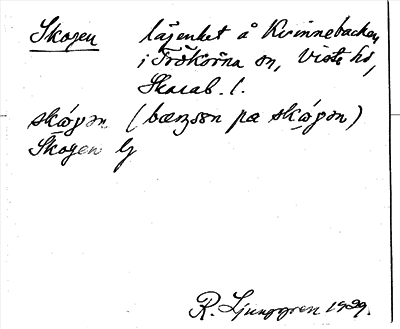 Skogen lägenhet å Kvinnebacken
i Trökörna sn, Viste hd,
Skarab. l.
skógən (bærjsən pa skógən)
Skogen lj
R. Ljunggren 1929.